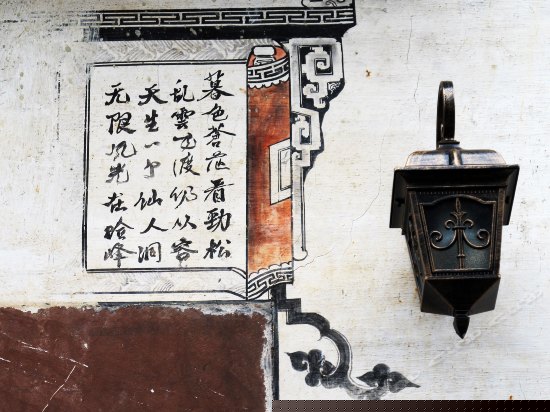 暮色苍茫看劲松
乱雲飞渡仍从容
天生一个仙人洞
无限风光在险峰